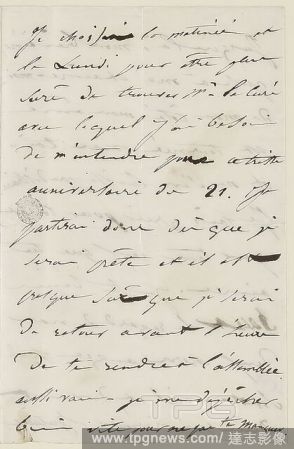 Je choisis la matinée et
le Lundi pour être plus
sûre de trouver Mr le Curé
avec lequel j'ai besoin
de m'entendre pour ce triste
anniversaire du 21. Je
partirai donc dès que je
serai prête et il est
presque sûr que je serai
de retour avant l'heure
de te rendre à l'Assemblée
aussi vais-je me dépêcher
bien vite pour ne pas te manquer
TPG
www.tpgnews.com / 達志影像